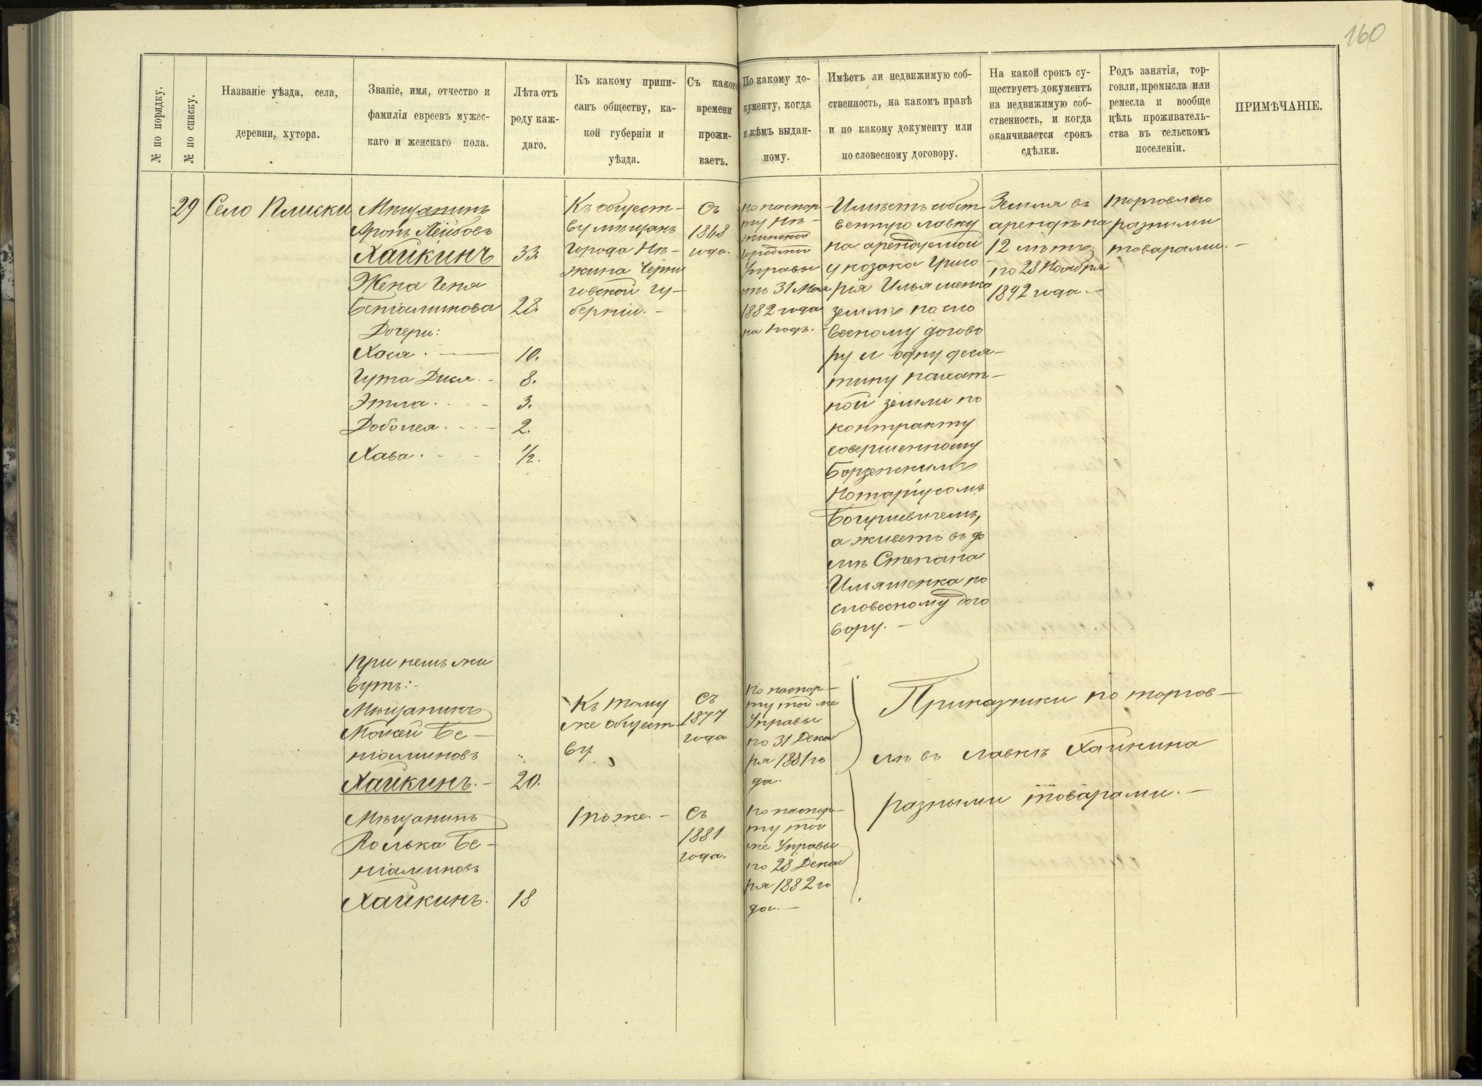 160
№ по порядку.
№ по списку.
Названіе уѣзда, села,
деревни, хутора.
Званіе, имя, отчество и
фамилія евреевъ мужес-
каго и женскаго пола.
Лѣта отъ
роду каж-
даго.
Къ какому припи-
санъ обществу, ка-
кой губерніи и
уѣзда.
Съ какого
времени
прожи-
ваетъ.
По какому до-
кументу, когда
и кѣмъ выдан-
ному.
Имѣетъ ли недвижимую соб-
ственность, на какомъ правѣ
и по какому документу или
по словесному договору.
На какой срокъ су-
ществуетъ документъ
на недвижимую соб-
ственность, и когда
оканчивается срокъ
сдѣлки.
Родъ занятія, тор-
говли, промысла или
ремесла и вообще
цѣль проживатель-
ства въ сельскомъ
поселеніи.
ПРИМѢЧАНІЕ.
29
Село Плиски
Мѣщанинъ
Аронъ Лейбовъ
Хайкинъ
33.
Жена Геня
Беніаминова
28.
Дочери:
Хася.
10.
Гута Дися.
8.
Этла.
3.
2.
Хава.
1/2.
Къ общест-
ву мѣщанъ
города Нѣ-
жина Черни
говской гу-
берніи.
Съ
1868
года.
по паспор-
ту Нѣ-
жинской
городской
Управы
отъ 31 Мая
1882 года
на годъ.
Имѣетъ собст
венную лавку
на арендуемой
у козака Григо
рія Ильяшенка
землѣ по сло
весному догово
ру и одну деся-
тину пахат-
ной земли по
контракту
совершенному
Борзенскимъ
Нотаріусомъ
Богушевичемъ,
а живетъ въ до
мѣ Степана
Ильяшенка по
словесному дого
вору.
Земля въ
арендѣ на
12 лѣтъ
по 28 Ноября
1892 года.
торговлею
разными
товарами.
При немъ жи
вутъ:
Мѣщанинъ
Мовсей Бе-
ніаминовъ
Хайкинъ.
20.
Къ тому
же общест
ву
Съ
1877
года
по паспор-
ту той же
Управы
по 31 Дека
ря 1881 го
да.
Мѣщанинъ
Іолька Бе-
ніаминовъ
Хайкинъ.
18
тоже.
Съ
1881
года.
по паспор-
ту той
же Управы
по 28 Дека
ря 1882 го
да.
Приказчики по торгов-
лѣ въ лавкѣ Хайкина
разными товарами.